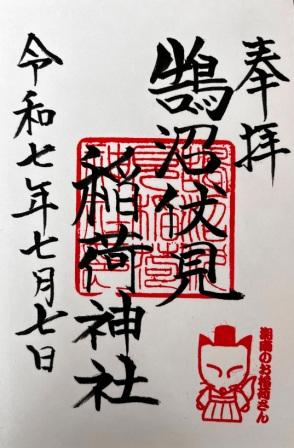 奉拝
鵠沼伏見
稲荷神社
令和七年七月七日
湘南のお稲荷さん